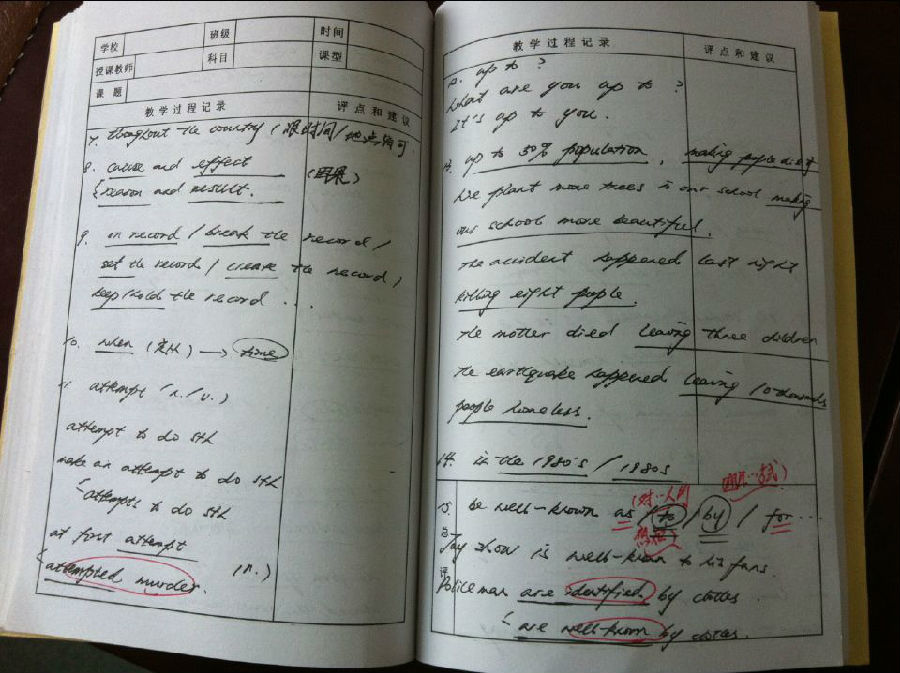 学校 班级 时间
授课教师 科目 课型
课题
教学过程记录 评点和建议
7. thoughout the country (跟时间/地点均可
8. cause and effect
reason and result. (因果)
9. on record / break the record /
set the record / create the record /
keep/hold the record ...
10. when (定从) → time
11. attempt (n./v.)
attempt to do sth
make an attempt to do sth
attempts to do sth
at first attempt
attempted murder. (n.)
教学过程记录 评点和建议
up to ?
What are you up to ?
It's up to you.
up to 50% population, making people
We plant more trees in our school making
our school more beautiful.
The accident happened last night
killing eight people.
The mother died leaving three children
The earthquake happened leaving 10 thousands
people homeless.
14. in the 1980's / 1980s
(对…人们
15. be well-known as / to / by / for ...
Jay Chow is well-known to his fans.
评
Policeman are identified by clothes
are well-known by clothes.